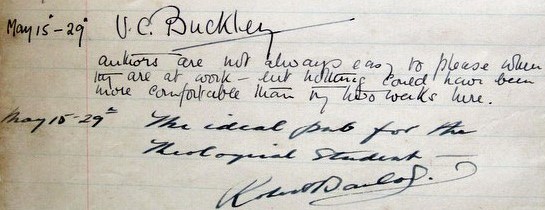 May 15 - 29th V. C. Buckley
Authors are not always easy to please when
they are at work - but nothing could have been
more comfortable than my two weeks here.
May 15 - 29th The ideal pub for the
Theological Student -
Robert